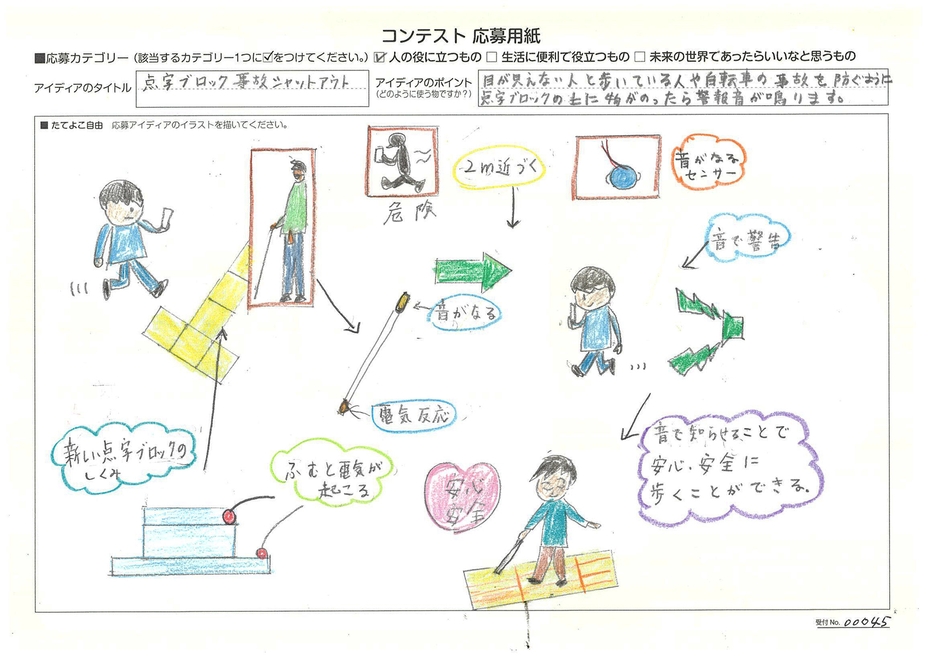 コンテスト 応募用紙
■応募カテゴリー（該当するカテゴリー1つに☑をつけてください。）☑ 人の役に立つもの □ 生活に便利で役立つもの □ 未来の世界であったらいいなと思うもの
アイディアのタイトル
点字ブロック事故シャットアウト
アイディアのポイント
（どのように使う物ですか？）
目が見えない人と歩いている人や自転車の事故を防ぐように
点字ブロックの上に物がのったら警報音が鳴ります。
■ たてよこ自由 応募アイディアのイラストを描いてください。
危険
2m近づく
音がなる
センサー
音で警告
音がなる
電気反応
新しい点字ブロックの
しくみ
ふむと電気が
起こる
安心
安全
音で知らせることで
安心、安全に
歩くことができる。
受付No. 00045